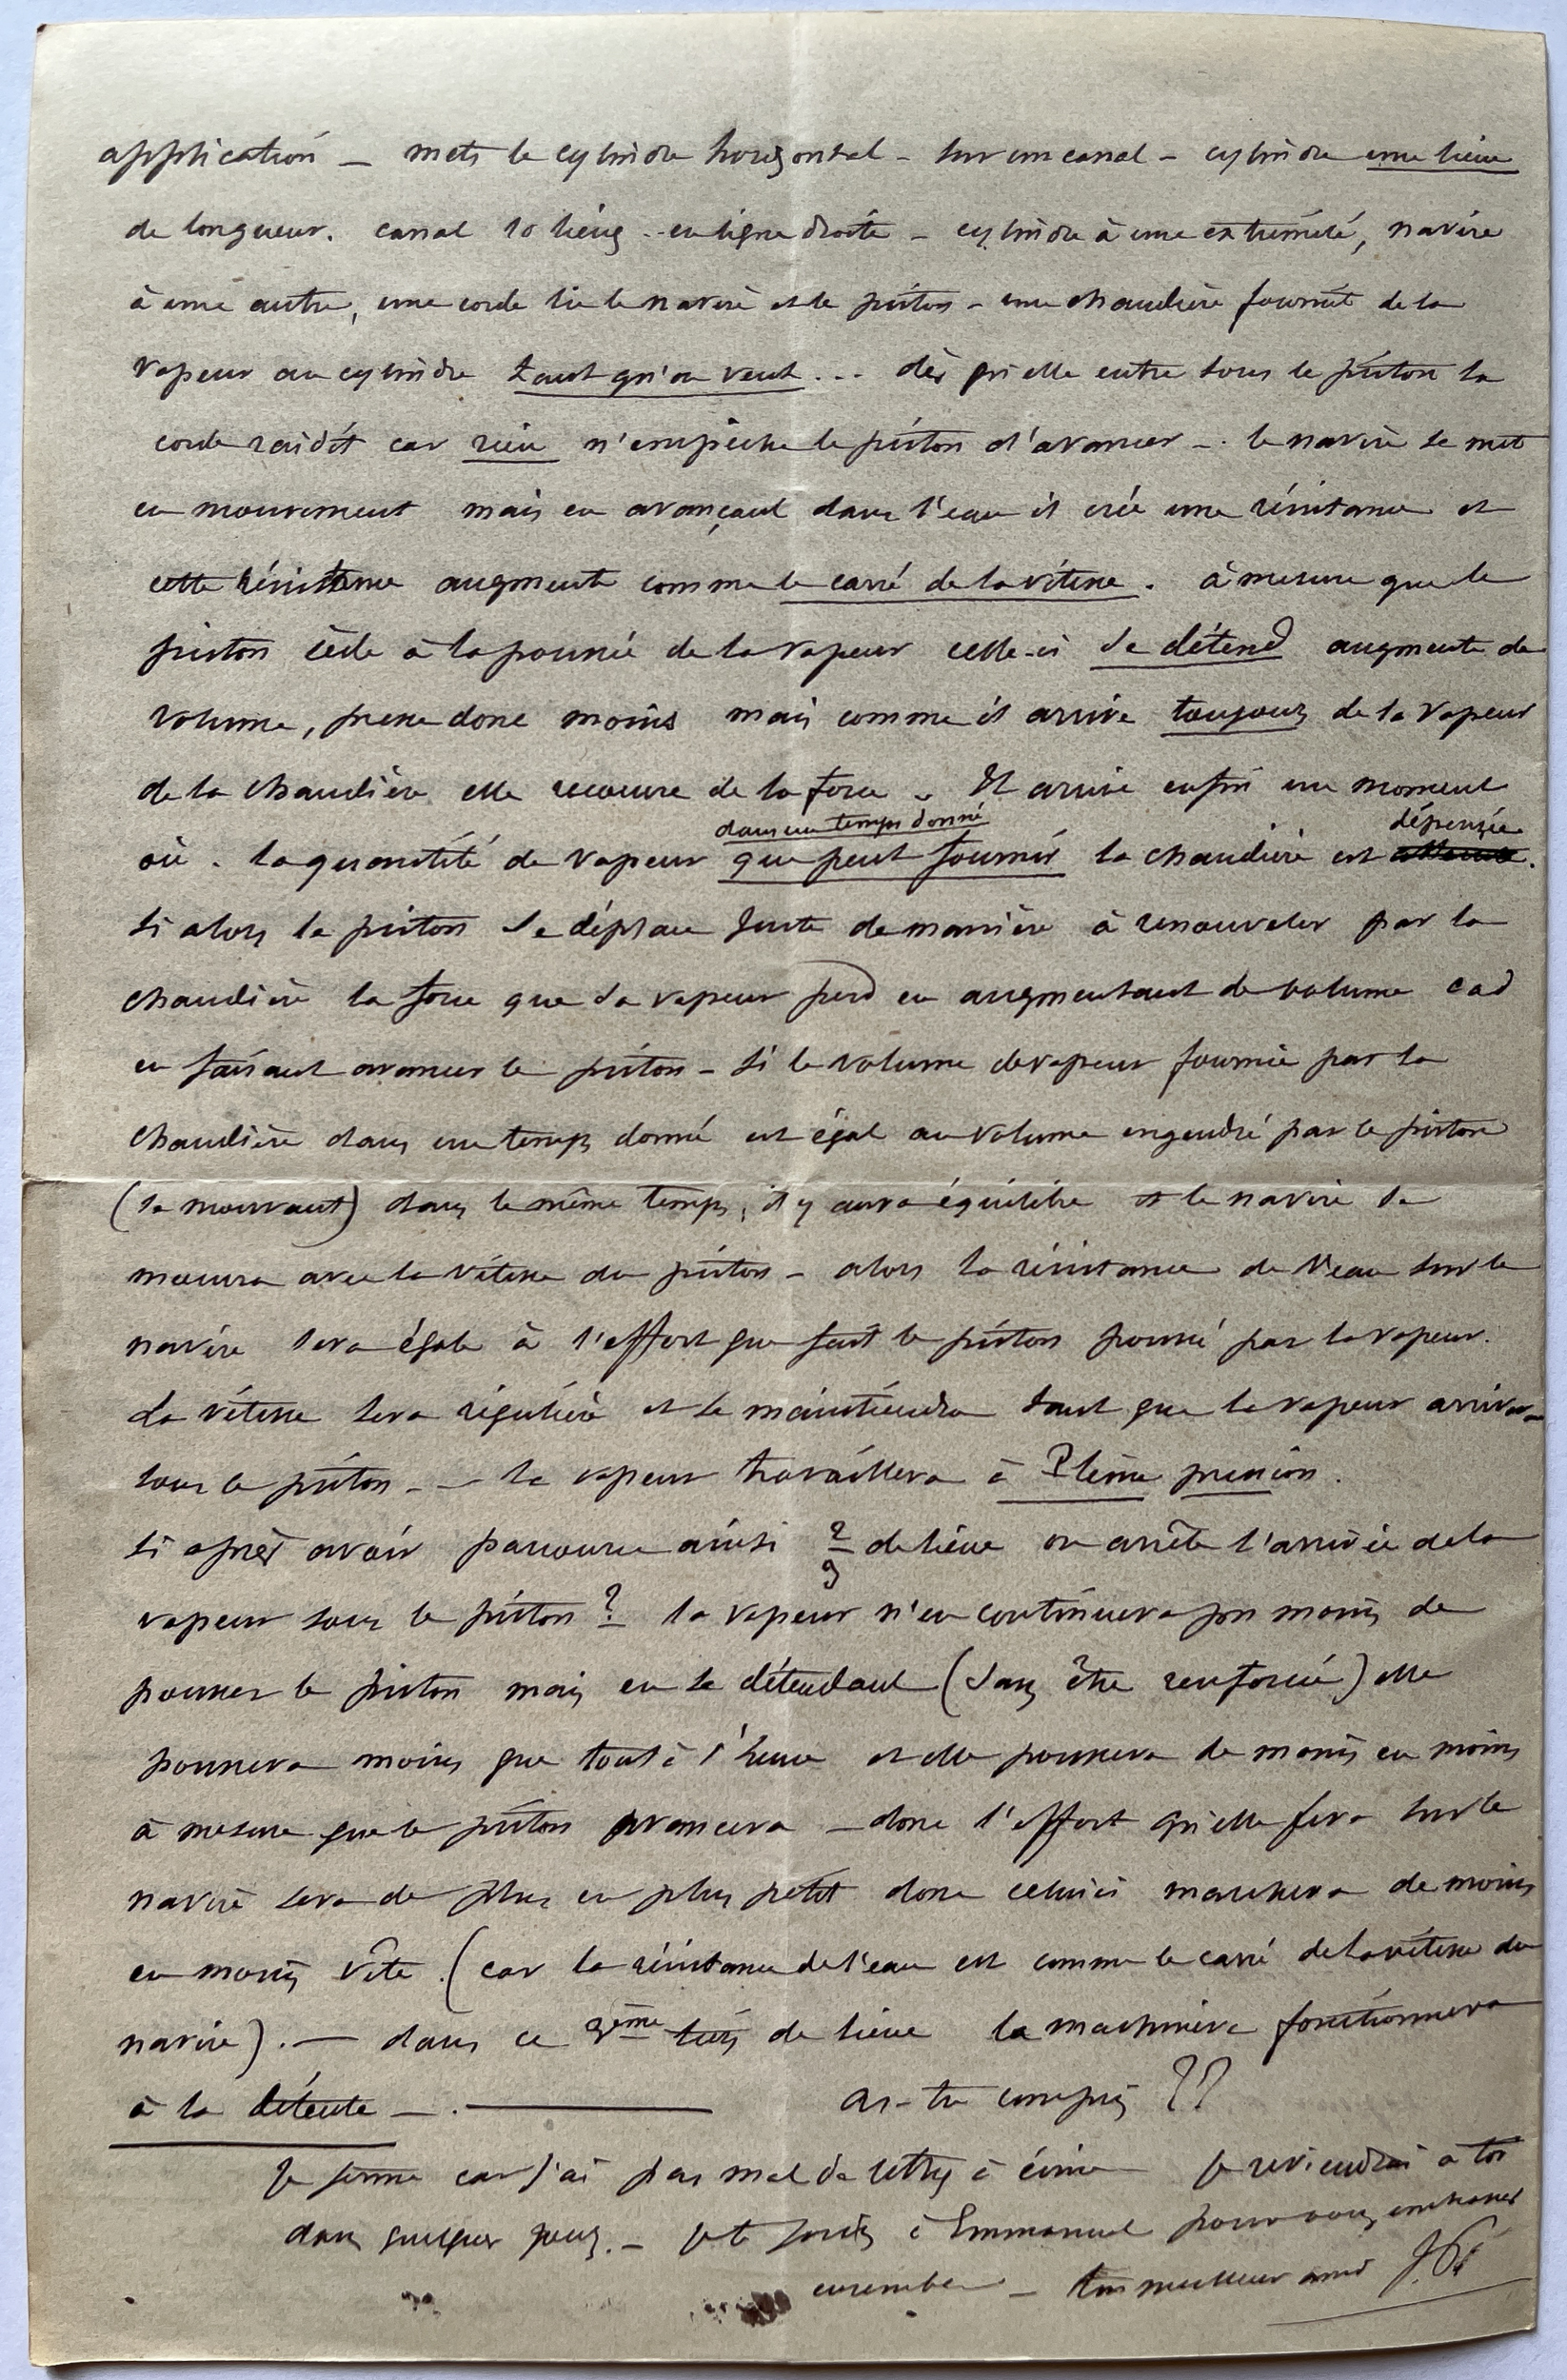 application — mets le cylindre horizontal – sur un canal – cylindre une lieue
de longueur. canal 10 lieues – en ligne droite – cylindre à une extrémité, navire
à une autre, une corde lie le navire et le piston – une chaudière fournit de la
vapeur au cylindre tant qu'on veut... dès qu'elle entre sous le piston la
corde raidit car rien n'empêche le piston d'avancer – le navire se met
en mouvement mais en avançant dans l'eau il crée une résistance et
cette résistance augmente comme le carré de la vitesse. à mesure que le
piston cède à la poussée de la vapeur celle-ci se détend augmente de
volume, presse donc moins mais comme il arrive toujours de la vapeur
de la chaudière elle recouvre de la force. Il arrive enfin un moment
dans un temps donné dépensée
où la quantité de vapeur que peut fournir la chaudière est
si alors le piston se déplace juste de manière à renouveler par la
chaudière la force que la vapeur perd en augmentant de volume cad
en faisant avancer le piston – si le volume de vapeur fournie par la
chaudière dans un temps donné est égal au volume engendré par le piston
(se mouvant) dans le même temps, il y aura équilibre et le navire se
mouvra avec la vitesse du piston – alors la résistance de l'eau sur le
navire sera égale à l'effort que fait le piston poussé par la vapeur.
La vitesse sera régulière et se maintiendra tant que la vapeur arrivera
sous le piston. — la vapeur travaillera à Pleine pression.
si après avoir parcouru ainsi 2/3 de lieue on arrête l'arrivée de la
vapeur sous le piston ? la vapeur n'en continuera pas moins de
pousser le piston mais en se détendant (sans être renforcée) elle
poussera moins que tout à l'heure et elle poussera de moins en moins
à mesure que le piston avancera – donc l'effort qu'elle fera sur le
navire sera de plus en plus petit donc celui ci marchera de moins
en moins vite. (car la résistance de l'eau est comme le carré de la vitesse du
navire). — dans ce 3ème tiers de lieue la machine fonctionnera
à la détente — . ——— as-tu compris ??
Je ferme car j'ai pas mal de lettres à écrire je reviendrai à toi
dans quelques jours. – je te joins à Emmanuel pour vous embrasser
ensemble — ton meilleur ami